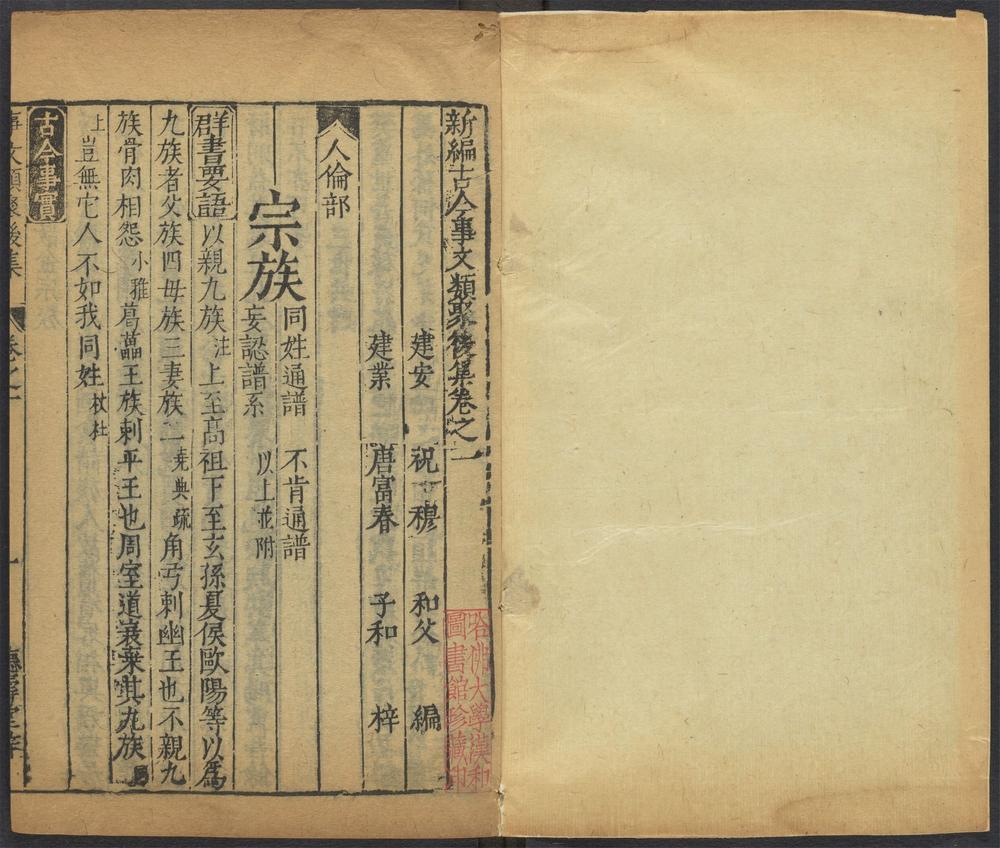 新編古今事文類聚後集卷之一
建安 祝 穆 和父 編
建業 唐富春 子和 梓
人倫部
宗族 同姓通譜 不肯通譜
妄認譜系 以上並附
群書要語 以親九族 注 上至高祖下至玄孫夏侯歐陽等以爲
九族者父族四母族三妻族二 堯典疏 角弓刺幽王也不親九
族骨肉相怨 小雅 葛藟王族刺平王也周室道衰棄其九族
上 豈無它人不如我同姓 杕杜
古今事實
事文類聚後集 卷之一 一 德壽堂梓
哈佛大學漢和
圖書館珍藏印